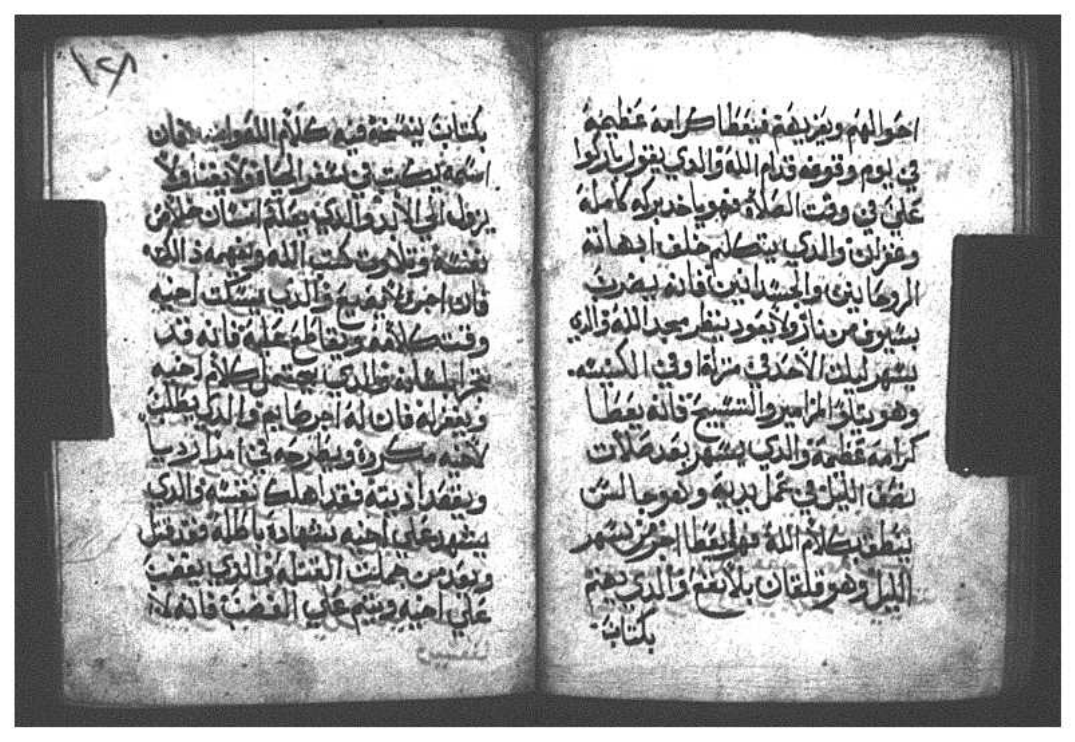 احوالهم ويعزيهم فيعطا كرامه عظيمه
في يوم وقوفه قدام الله والدي يقول باركوا
علي في وقت الصلاة فهو ياخد بركه كامله
والدي يتكلم خلف ابهاته
الروحانين والجسدانين فانه يضرب
بسيوف من نار ولا يعود ينظر مجد الله والدي
يسهر ليلت الاحد في منزله او في الكنيسه
وهو يتلوا المزامير والتسبيح فانه يعطا
كرامه عظيمه والدي يسهر بعد صلات
نصف الليل في عمل يديه وهو جالس
ينطق بكلام الله فهو يعطا اجر من يسهر
الليل وهو قلقان بلا نفع والدي يهتم
بكتاب
١٢٨
بكتاب لينسخ فيه كلام الله فان
اسمه يكتب في سفر الحياة ولا يفنا ولا
يزول الي الابد والدي يعلم انسان خلاص
نفسه وتلاوت كتب الله ويفهمه دالك
فان اجره لا يضيع والدي يسكت اخيه
وقت كلامه ويقاطع عليه فانه قد
والدي يحتمل كلام اخيه
ويغفر له فان له اجر صايم والدي يطلب
لاخيه مكروه ويطرحه في امرا رديا
ويقصد اديته فقد اهلك نفسه والدي
يشهد علي اخيه بشهادة باطله فقد قتل
ويعد من جملت القتله والدي يغضب
علي اخيه ويتم علي الغضب فانه لا